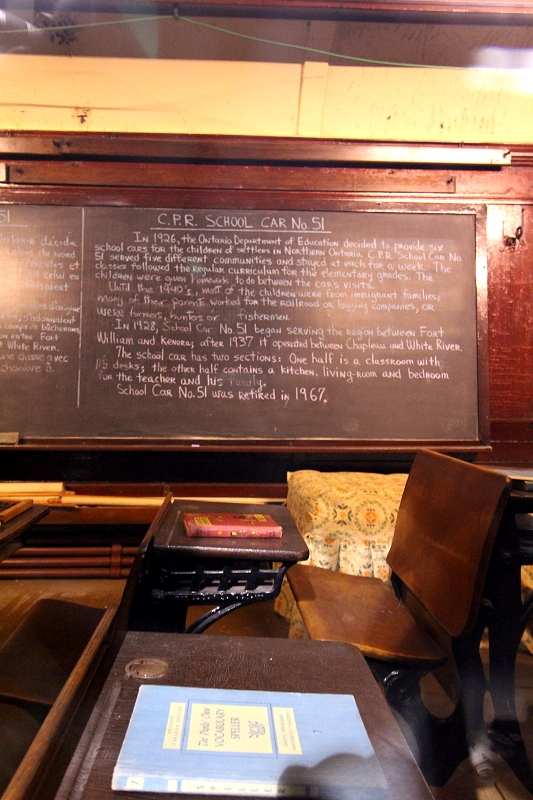 51
Ontario décida
du nord
C.P.R. SCHOOL CAR No. 51
In 1926, the Ontario Department of Education decided to provide six
school cars for the children of settlers in Northern Ontario. C.P.R. School Car No.
51 served five different communities and stayed at each for a week. The
classes followed the regular curriculum for the elementary grades. The
children were given homework to do between the car's visits.
Until the 1940's, most of the children were from immigrant families;
many of their parents worked for the railroad or logging companies, or
were farmers, hunters or fishermen.
In 1928, School Car No. 51 began serving the region between Fort
William and Kenora; after 1937 it operated between Chapleau and White River.
The school car has two sections: One half is a classroom with
15 desks; the other half contains a kitchen, living-room and bedroom
for the teacher and his family.
School Car No. 51 was retired in 1967.
The Pupils' Own
VOCABULARY
SPELLER
7
SPELLER